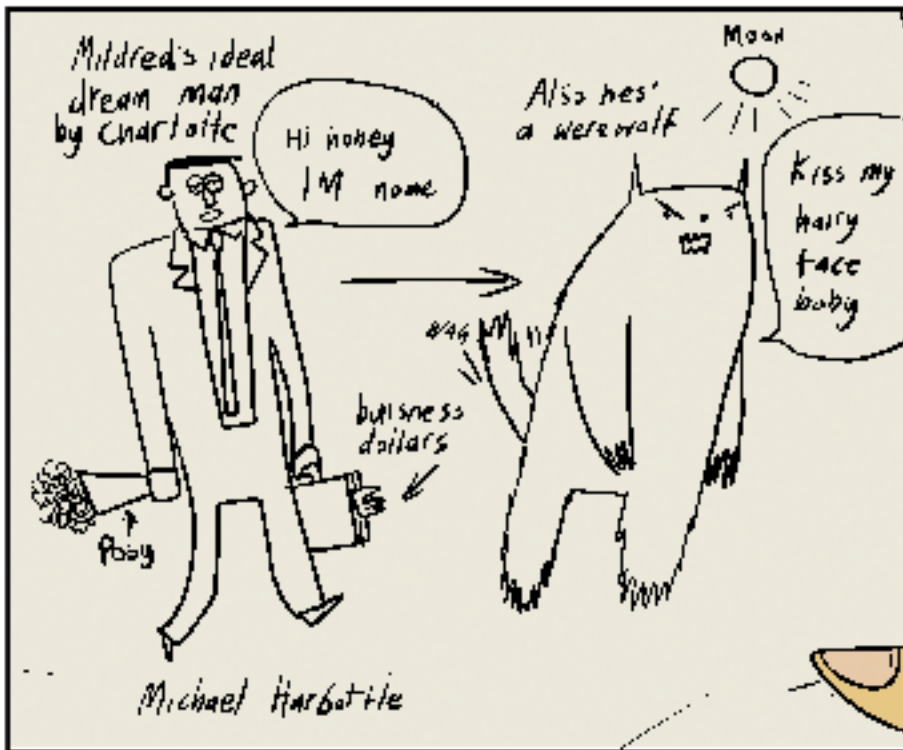 Mildred's ideal
dream man
by Charlotte
Hi honey
IM home
Also hes'
a werewolf
Moon
Kiss my
hairy
face
baby
WAG
buisness
dollars
Posy
Michael Harbottle